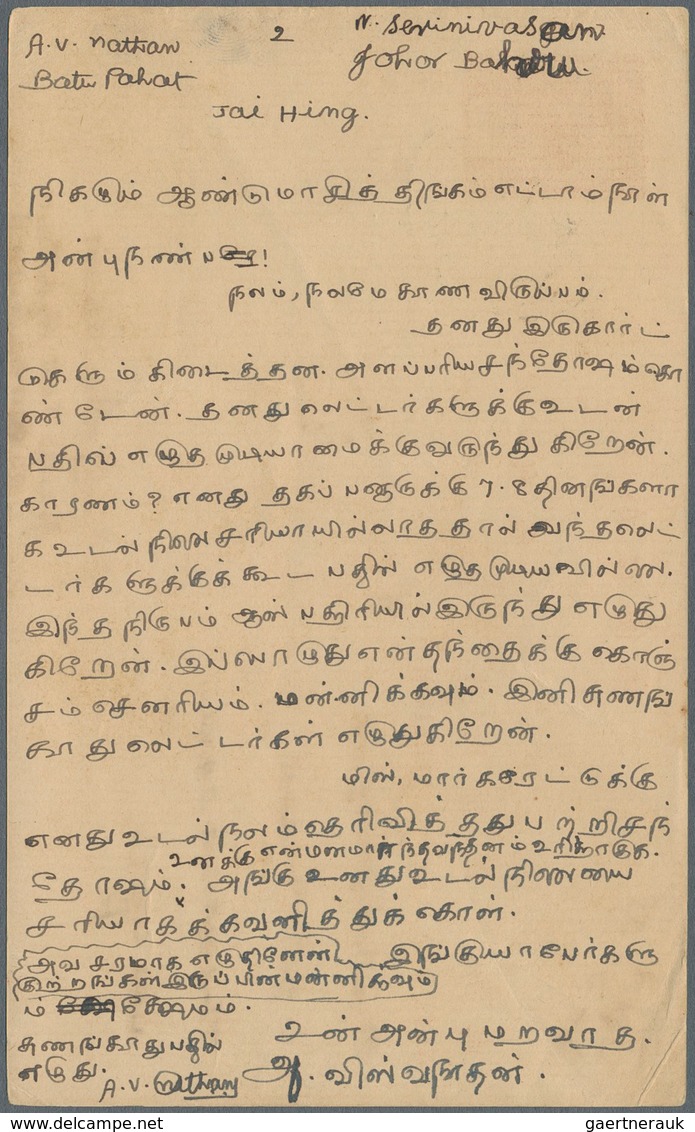 A.V. Nathan
Batu Pahat
2
N. Serinivasan
Johor Bahru.
Jai Hing.
நிகழும் ஆண்டு மாசித் திங்கம் எட்டாம் நாள்
அன்பு நண்பரே!
நலம், நலமே காண விருப்பம்.
தனது இரு கார்ட்
டுகளும் கிடைத்தன. அளப்பரிய சந்தோஷம் கொ
ண்டேன். தனது லெட்டர்களுக்கு உடன்
பதில் எழுத முடியாமைக்கு வருந்துகிறேன்.
காரணம்? எனது தகப்பனாருக்கு 7.8 தினங்களா
க உடல் நிலை சரியாயில்லாததால் வந்த லெட்
டர்களுக்குக் கூட பதில் எழுத முடியவில்லை.
இந்த நிருபம் ஆஸ்பத்திரியில் இருந்து எழுது
கிறேன். இப்பொழுது என் தந்தைக்கு கொஞ்
சம் சௌரியம். மன்னிக்கவும். இனி சுணங்
காது லெட்டர்கள் எழுதுகிறேன்.
மிஸ், மார்கரெட்டுக்கு
எனது உடல் நலம் தெரிவித்தது பற்றி சந்
உனக்கு என் மனமார்ந்த வந்தனம் உரித்தாகுக.
தோஷம். அங்கு உனது உடல் நிலையை
சரியாகக் கவனித்துக் கொள்.
அவசரமாக எழுதினேன்
இங்கு யாபேர்களு
குற்றங்கள் இருப்பின் மன்னிக்கவும்
ம் க்ஷேமம்.
சுணங்காது பதில்
எழுது.
உன் அன்பு மறவாத.
A.V. Nathan
ஆ. விஸ்வநாதன்.
gaertnerauk